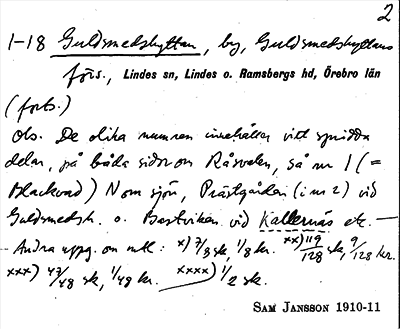 2
1-18 Guldsmedshyttan, by, Guldsmedshyttans
förs., Lindes sn, Lindes o. Ramsbergs hd, Örebro län
(forts.)
Obs. De olika numren innehåller vitt spridda
delar, på båda sidor om Råsvalen, så nr 1 (=
Blackvad) N om sjön, Prästgården (i nr 2) vid
Guldsmedsh. o. Bastviken vid Kallernäs etc. —
Andra uppg. om mtl: x) 7/8 sk, 1/8 kr. xx) 119/128 sk, 9/128 kr.
xxx) 47/48 sk, 1/48 kr. xxxx) 1/2 sk.
SAM JANSSON 1910-11